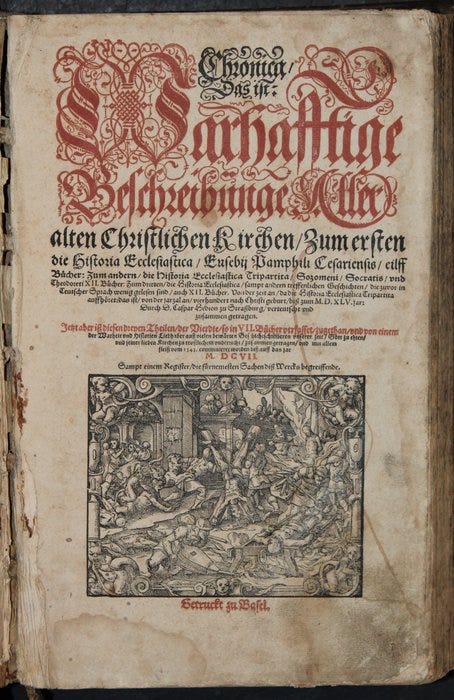 Chronica/
Das ist:
Warhafftige
Beschreibunge Aller
alten Christlichen Kirchen/Zum ersten
die Historia Ecclesiastica/Eusebij Pamphili Cesariensis/eilff
Bücher: Zum andern/die Historia Ecclesiastica Tripartita/Sozomeni/Socratis/vnd
Theodoreti XII. Bücher: Zum dritten/die Historia Ecclesiastica/sampt andern trefflichen Geschichten/die zuvor in
Teutscher Sprach wenig gelesen sind/auch XII. Bücher. Von der zeit an/da die Historia Ecclesiastica Tripartita
auffhöret: das ist/von der jarzal an/vierhundert nach Christi geburt/biß zum M.D.XLV. jar:
Durch D. Caspar Hedion zu Straßburg/verteutscht vnd
zusammen getragen.
Jetzt aber ist diesen dreyen Theilen/der Vierdte/so in VII. Bücher verfasset/zugethan/vnd von einem
der Warheit vnd Historien Liebhaber auß vielen bewärten Geschichtschreibern vnserer zeit/Gott zu ehren/
vnd seiner lieben Kirchen zu trostlichem vnderricht/zusammen getragen/vnd mit allem
fleiß vom 1545. continuieret worden biß auff das jar
M. DCVII.
Sampt einem Register/die fürnemesten Sachen diß Wercks begreiffende.
Getruckt zu Basel.